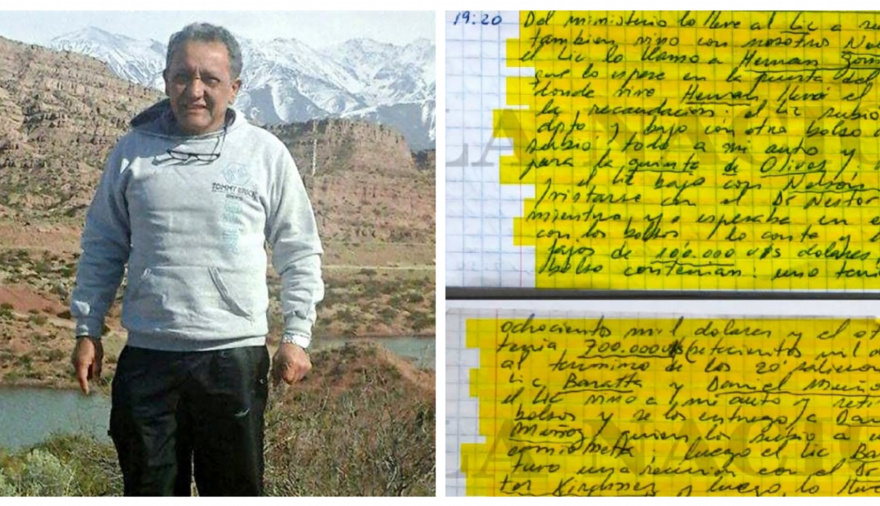 TOMMY BROOK
19:20 Del ministerio lo lleve al Lic a
tambien vino con nosotros
el Lic lo llamo a Hernan
que lo espere en la puerta del
donde vive Hernan llevo el
la recaudacion: el Lic subio
dpto y bajo con otro bolso
subio todo a mi auto y
para la quinta de Olivos,
y el Lic bajo con Nelson
con el Dr Nestor
mientras yo esperaba en
con los bolsos, lo conte y
fajos de 100.000 u$s dolares,
bolso contenian: uno
ochociento mil dolares y el
tenia 700.000 u$s (setecientos mil
al termino de los 20'
Lic Baratta y Daniel
el Lic vino a mi auto y
bolsos y se los entrego a
Muñoz, quien los subio a
camioneta; luego el Lic
tuvo una reunion con el Dr
Kirchner y luego, lo
LA NACION